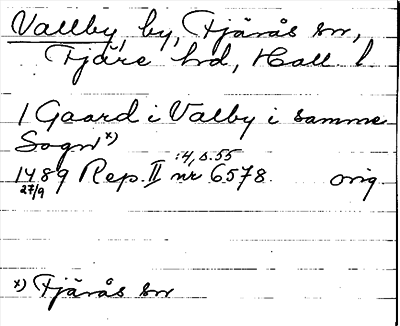 Vallby, by, Fjärås sn,
Fjäre hd, Hall. l
1 Gaard i Valby i samme
Sogn x)
:4, s. 55
1489 Rep. II nr 6578. orig.
27/9
x) Fjärås sn